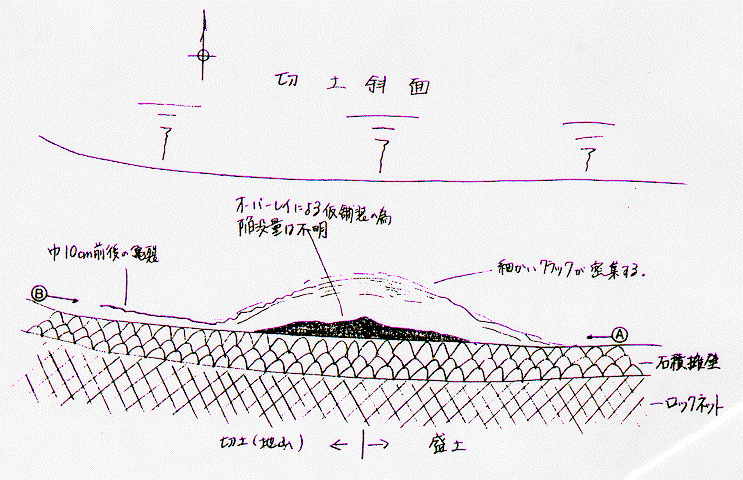 切土斜面
オーバーレイによる仮舗装の為
陥没量は不明
巾10cm前後の亀裂
細かいクラックが密集する。
B
A
石積擁壁
ロックネット
切土(地山) ← | → 盛土